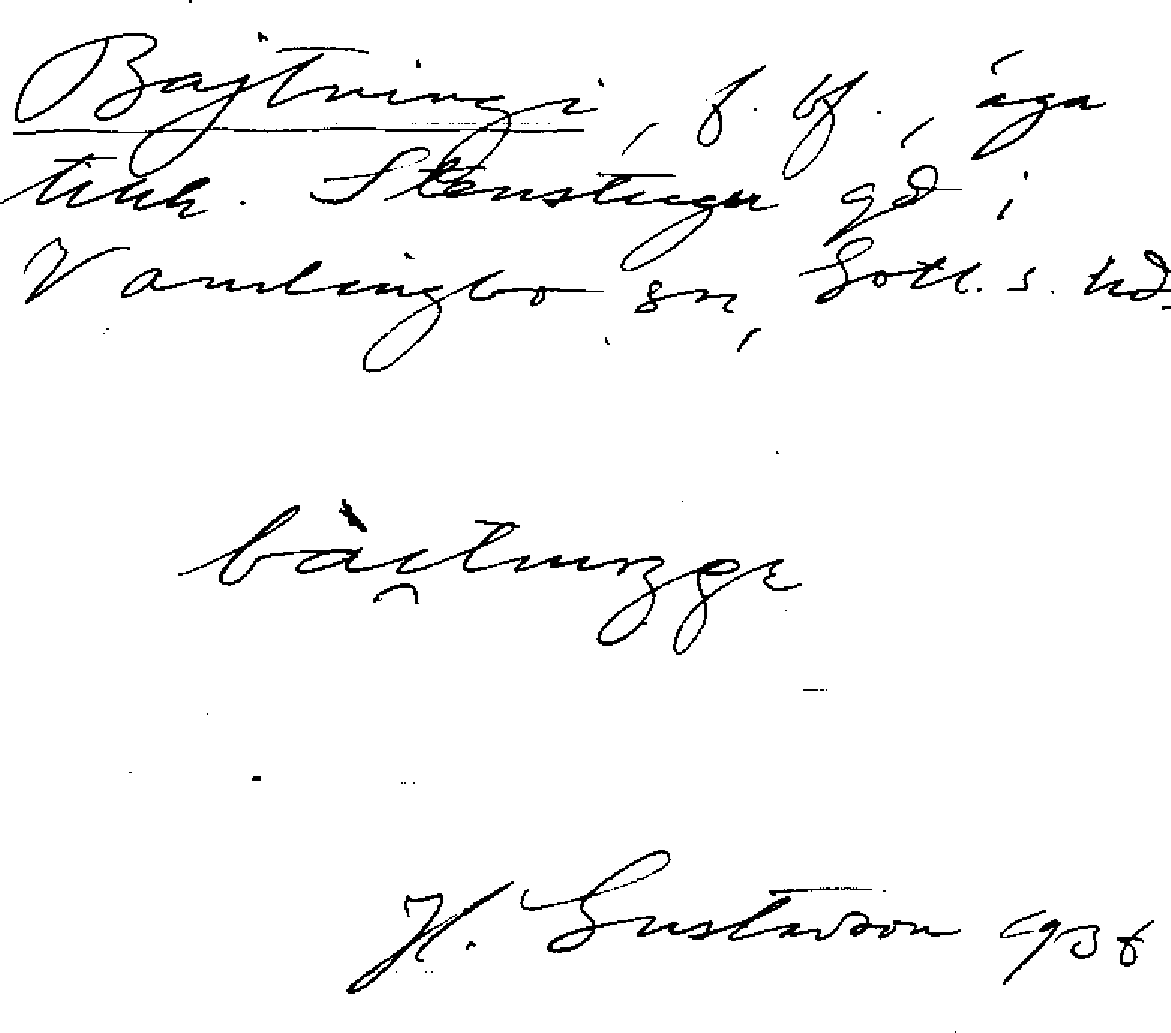 Bajtningi, f. bf., äga
tillh. Stenstugu gd i
Vamlingbo sn, Gotl. s. hd.
bài̯tnıŋgɛ
H. Gustavson 1936